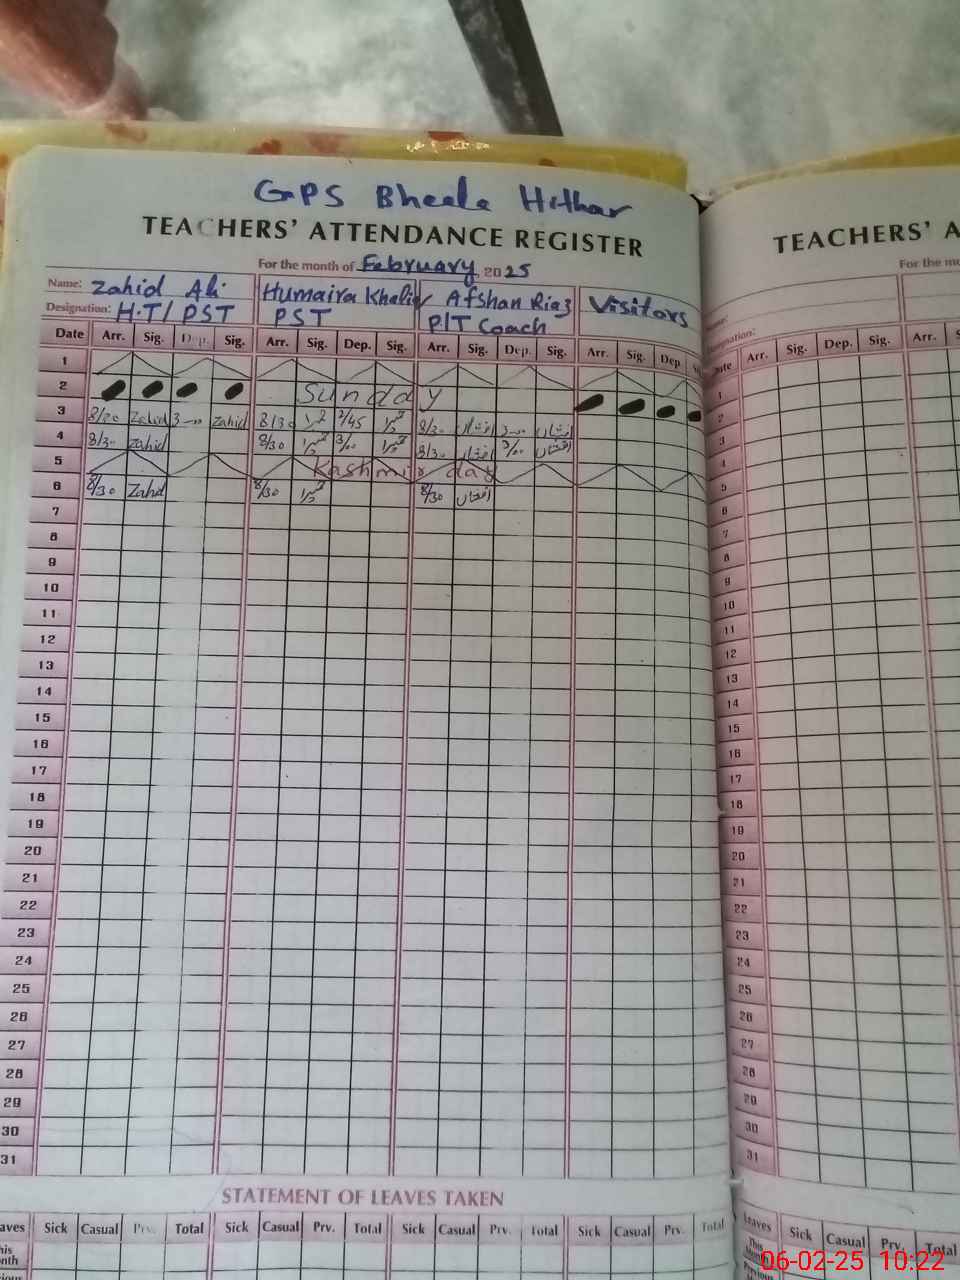 GPS Bheela Hithar
TEACHERS' ATTENDANCE REGISTER
For the month of February, 2025
Name: Zahid Ali Humaira Khaliq Afshan Riaz Visitors
Designation: H.T/ PST PST PIT Coach
Date Arr. Sig. Dep. Sig. Arr. Sig. Dep. Sig. Arr. Sig. Dep. Sig. Arr. Sig. Dep
1
2 Sunday
3 8/30 Zahid 3-00 Zahid 8/30 2/45 8/30 افشاں 3-00 افشاں
4 8/30 Zahid 8/30 3/00 8/30 افشاں 3/00 افشاں
5 Kashmir day
6 8/30 Zahid 8/30 8/30 افشاں
7
8
9
10
11
12
13
14
15
16
17
18
19
20
21
22
23
24
25
26
27
28
29
30
31
STATEMENT OF LEAVES TAKEN
aves Sick Casual Prv. Total Sick Casual Prv. Total Sick Casual Prv. Total Sick Casual Prv. Total
his
nth
ious
TEACHERS' A
For the mo
Name:
Designation:
Date Arr. Sig. Dep. Sig. Arr. S
1
2
3
4
5
6
7
8
9
10
11
12
13
14
15
16
17
18
19
20
21
22
23
24
25
26
27
28
29
30
31
Leaves Sick Casual Prv. Total
This
Month
Previous
06-02-25 10:22